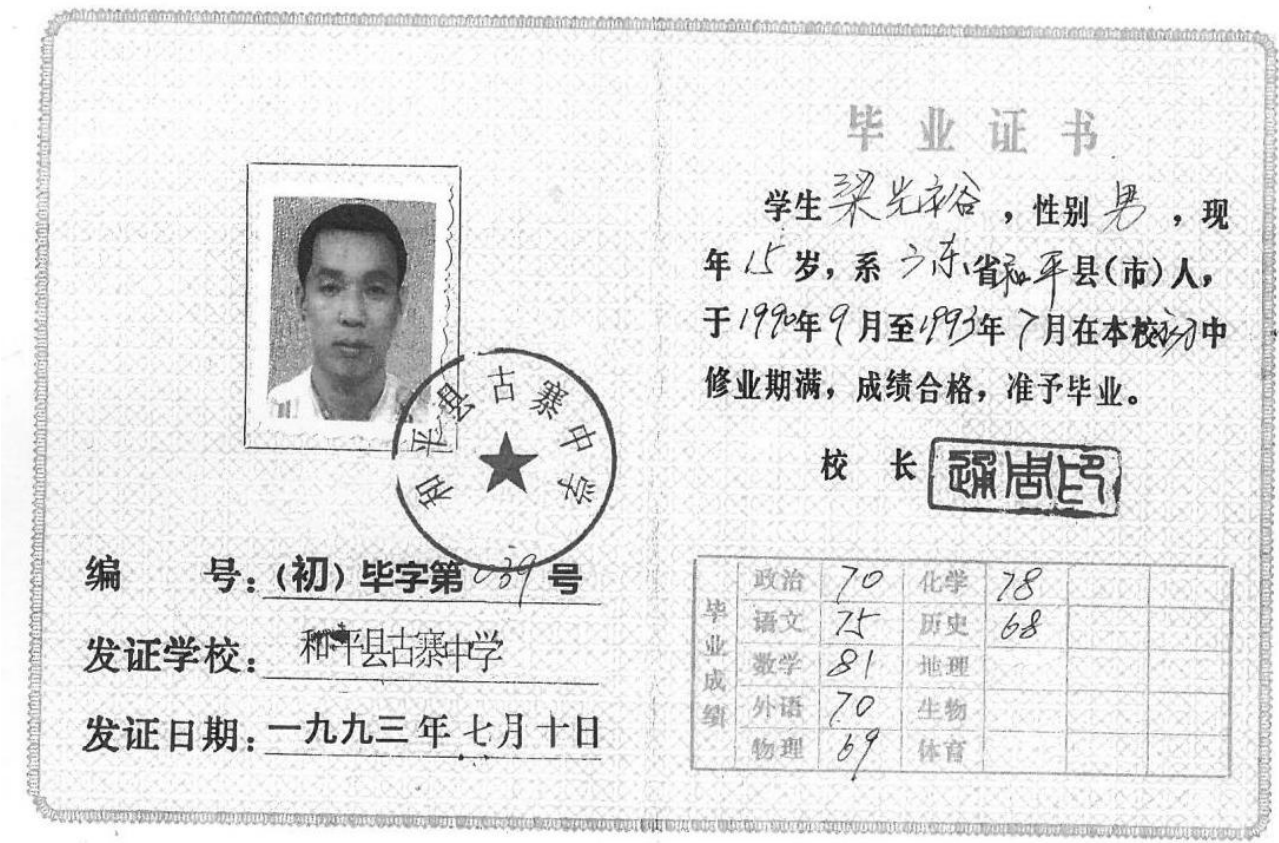 和平县古寨中学
编 号：（初）毕字第039号
发证学校：和平县古寨中学
发证日期：一九九三年七月十日
毕业证书
学生梁光裕，性别男，现
年15岁，系广东省和平县(市)人，
于1990年9月至1993年7月在本校初中
修业期满，成绩合格，准予毕业。
校 长
毕业成绩
政治 70 化学 78
语文 75 历史 68
数学 81 地理
外语 70 生物
物理 69 体育